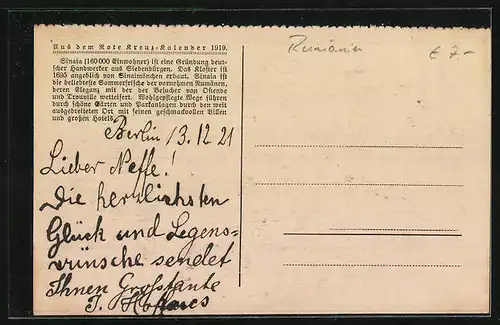 Aus dem Rote Kreuz-Kalender 1919.
Sinaia (160 000 Einwohner) ist eine Gründung deut-
scher Handwerker aus Siebenbürgen. Das Kloster ist
1695 angeblich von Sinaimönchen erbaut. Sinaia ist
die beliebteste Sommerfrische der vornehmen Rumänen,
deren Eleganz mit der der Besucher von Ostende
und Trouville wetteifert. Wohlgepflegte Wege führen
durch schöne Gärten und Parkanlagen durch den weit
ausgebreiteten Ort mit seinen geschmackvollen Villen
und großen Hotels.
Rumänien
€ 7-
Berlin 13.12.21
Lieber Neffe!
Die herzlichsten
Glück und Segens-
wünsche sendet
Ihnen Großtante